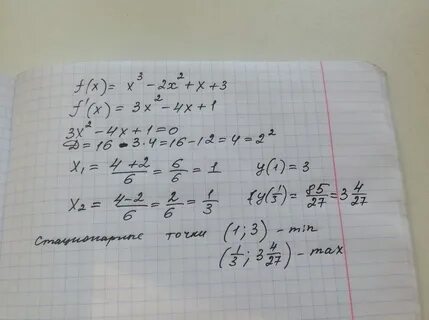 f(x) = x³ - 2x² + x + 3
f'(x) = 3x² - 4x + 1
3x² - 4x + 1 = 0
D = 16 - 3·4 = 16 - 12 = 4 = 2²
x₁ = (4+2)/6 = 6/6 = 1 y(1) = 3
x₂ = (4-2)/6 = 2/6 = 1/3 y(1/3) = 85/27 = 3 4/27
стационарные точки (1; 3) - min
(1/3; 3 4/27) - max